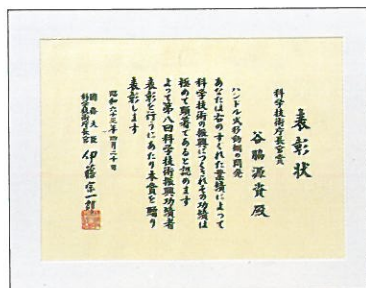 表彰状
科学技術庁長官賞
谷脇源資殿
ハンドル式移動棚の開発
あなたは右のすぐれた業績によって
科学技術の振興につくられその功績は
極めて顕著であると認めます
よって第八回科学技術振興功績者
表彰を行うにあたり本賞を贈り
表彰します
昭和六十三年四月二十日
国務大臣
科学技術庁長官 伊藤宗一郎